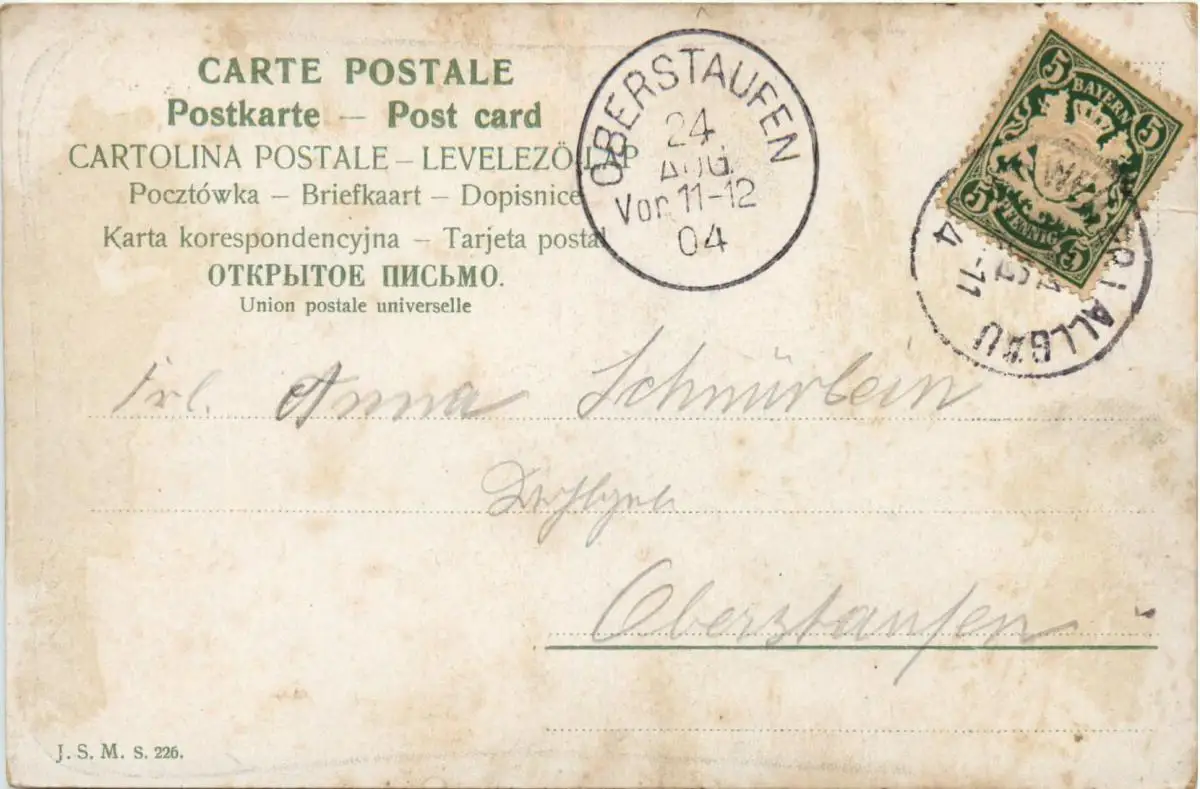 CARTE POSTALE
Postkarte — Post card
CARTOLINA POSTALE – LEVELEZŐ-LAP
Pocztówka – Briefkaart – Dopisnice
Karta korespondencyjna – Tarjeta postal
ОТКРЫТОЕ ПИСЬМО.
Union postale universelle
OBERSTAUFEN
24
AUG.
Vor. 11-12
04
5 BAYERN 5
5 PFENNIG 5
I ALLGÄU
-11
4
Frl. Anna Schnürlein
Oberstaufen
J. S. M. S. 226.